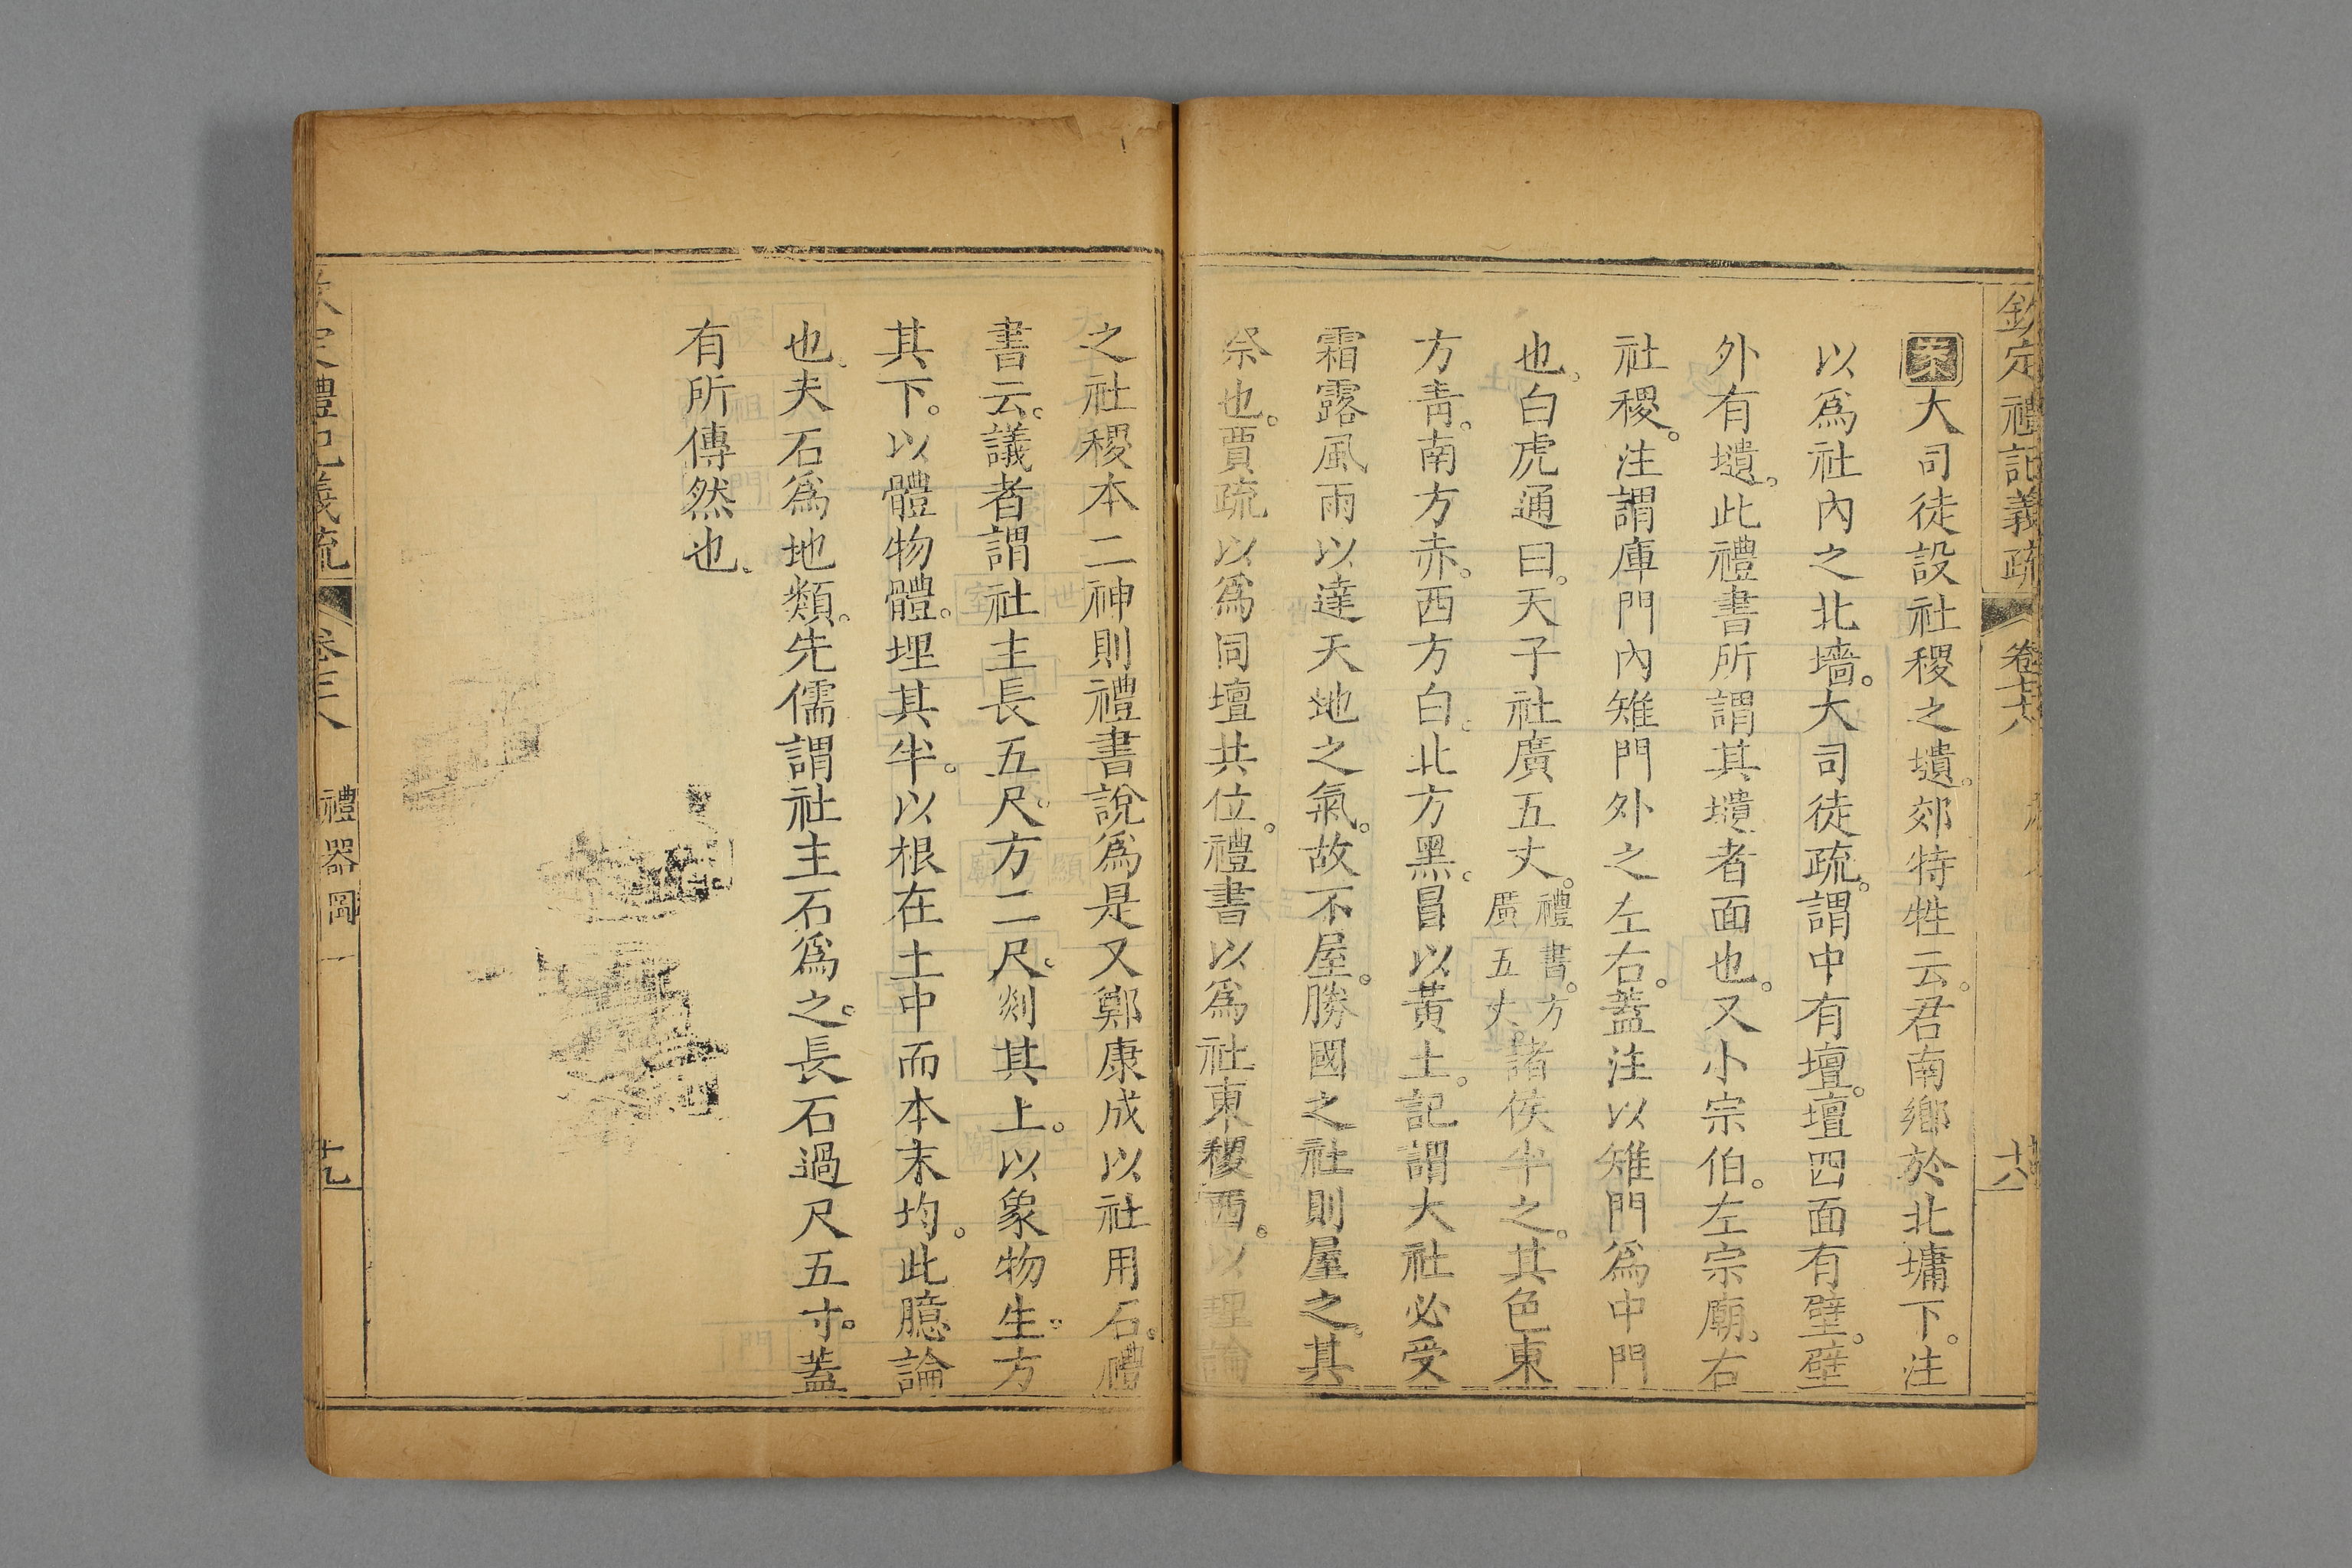 欽定禮記義疏 卷七十八 十八
案大司徒設社稷之壝。郊特牲云。君南鄉於北墉下。注
以為社內之北墻。大司徒疏。謂中有壇。壇四面有壁。壁
外有壝。此禮書所謂其壝者面也。又小宗伯。左宗廟。右
社稷。注謂庫門內雉門外之左右。蓋注以雉門為中門
也。白虎通曰。天子社廣五丈。禮書。方廣五丈。諸侯半之。其色東
方青。南方赤。西方白。北方黑。冒以黃土。記謂大社必受
霜露風雨以達天地之氣。故不屋。勝國之社則屋之。其
祭也。賈疏以為同壇共位。禮書以為社東稷西。以理論
之社稷本二神則禮書說為是又鄭康成以社用石。禮
書云。議者謂社主長五尺。方二尺。剡其上。以象物生。方
其下。以體物體。埋其半。以根在土中而本末均。此臆論
也。夫石為地類。先儒謂社主石為之。長石過尺五寸。蓋
有所傳然也。
定禮記義疏 禮器圖一 十九